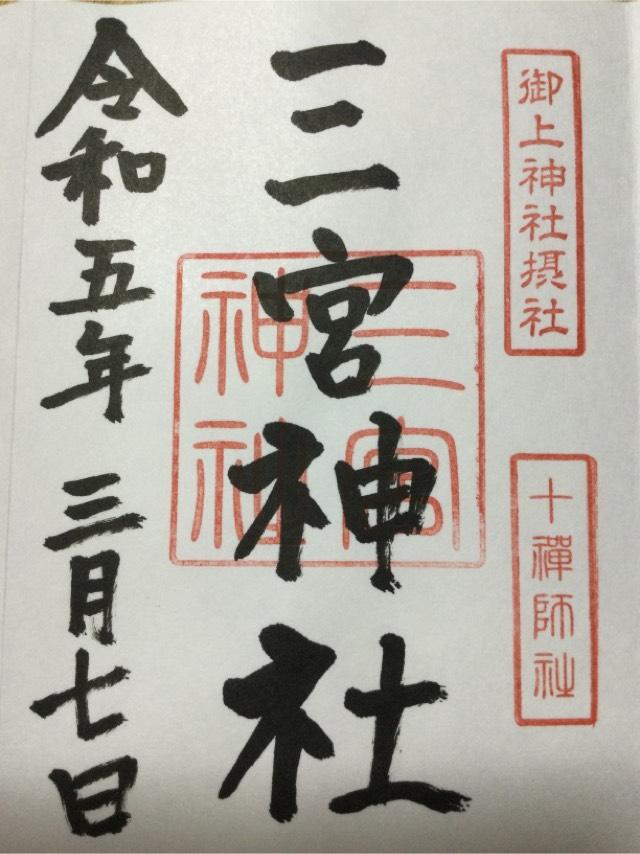 御上神社摂社
十禅師社
三宮神社
三宮
神社
令和五年 三月七日